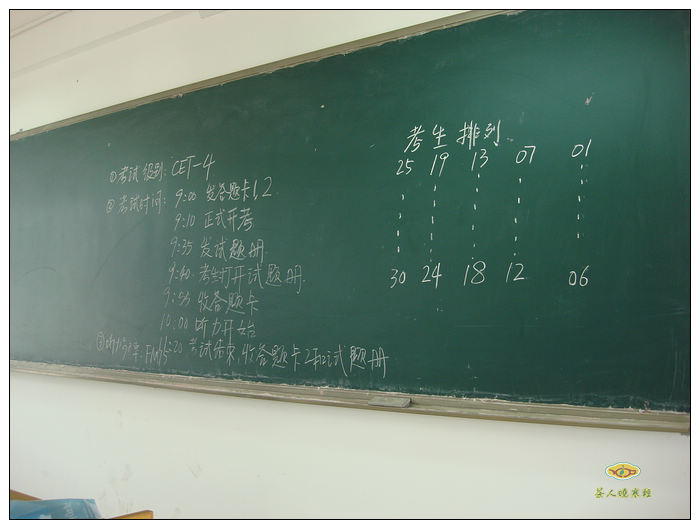 ①考试级别: CET-4
②考试时间: 9:00 发答题卡1,2
9:10 正式开考
9:35 发试题册
9:40 考生打开试题册.
9:55 收答题卡
10:00 听力开始
11:20 考试结束,收答题卡2和试题册
③听力
考生排列
25 19 13 07 01
30 24 18 12 06